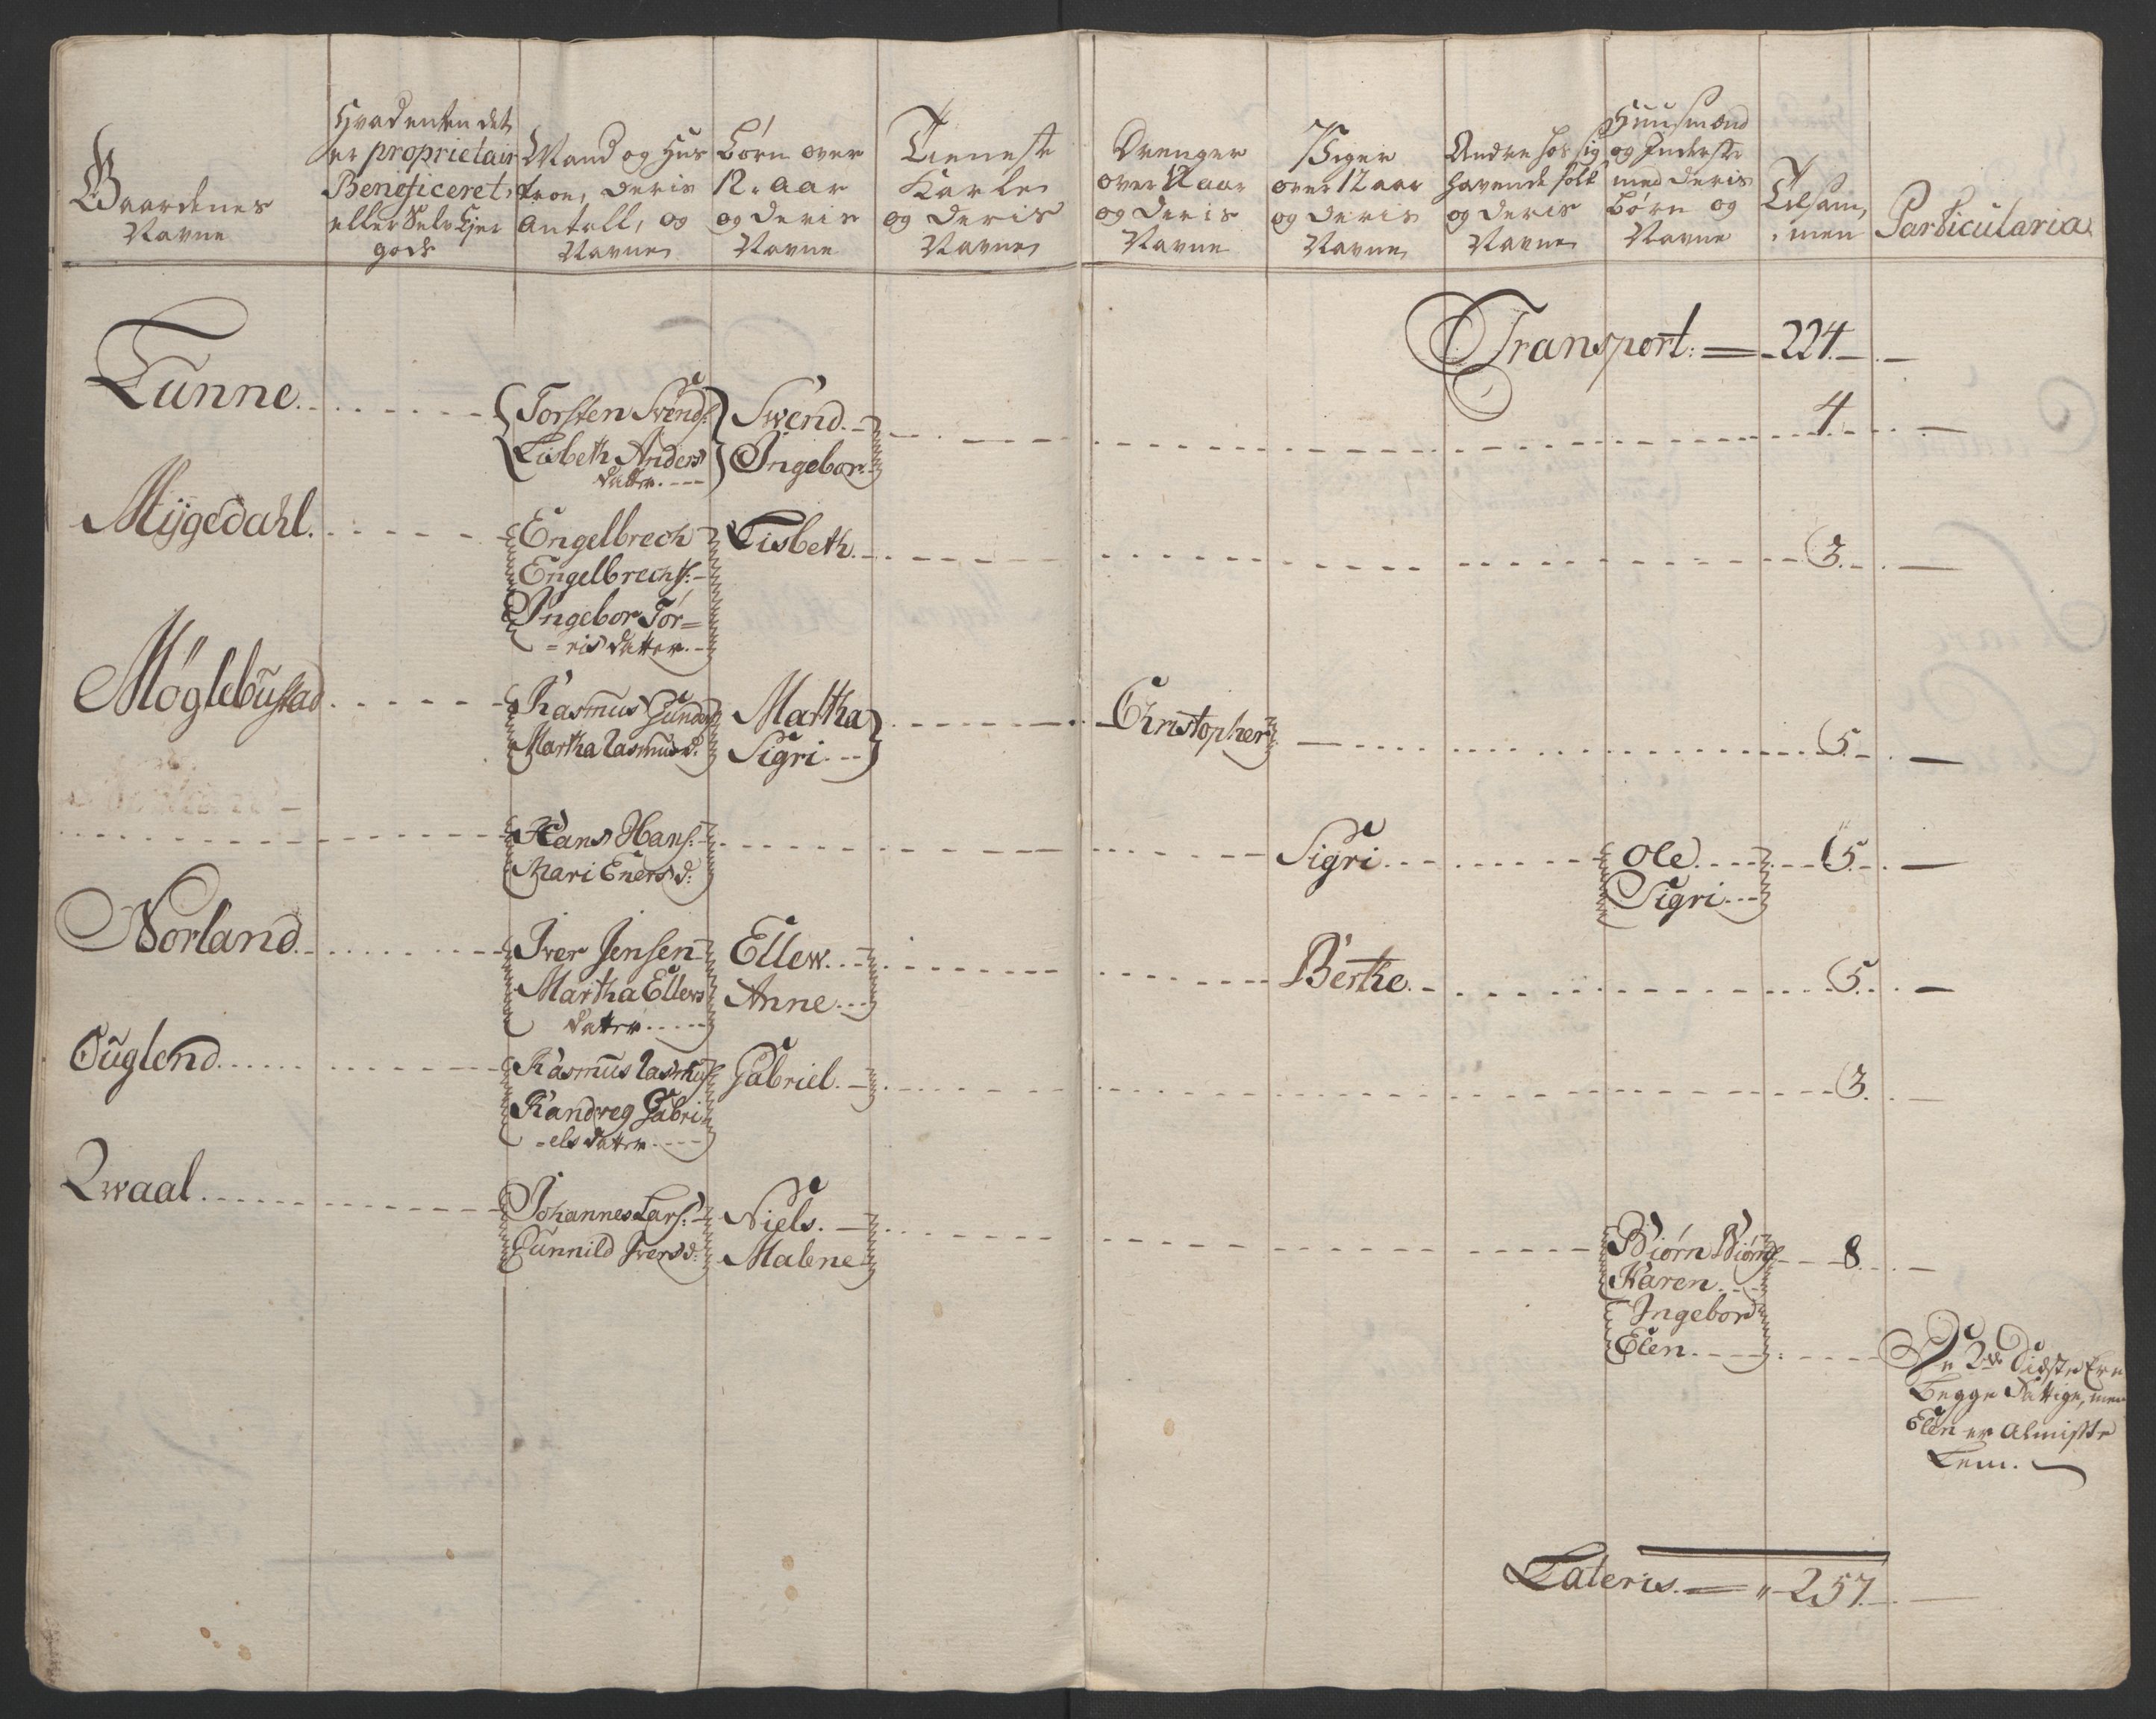 Gaardenes
Navne
Hvad enten det
er proprietair
Beneficeret,
eller Selv Ejer
gods
Mand og Hus
troe, Deris
Antall, og
Navne
Børn over
12. Aar
og Deris
Navne
Tieneste
Karle
og Deris
Navne
Drenger
over 12 aar
og Deris
Navne
Piger
over 12 aar
og Deris
Navne
Andre hos sig
havende folk
og Deris
Navne
Huusmænd
og Inderste
med Deris
Børn og
Navne
Tilsam,
men
Particularia
Transport: = 224.
Tunne
Torsten Svends:
Lisbeth Anders
datter
Swend
Ingebor
4
Mygedahl
Engelbrech
Engelbrechs:
Ingebor Tor=
=ris datter
Lisbeth
3
Møglebustad
Rasmus Gunders
Martha Rasmusd:
Martha
Sigri
Christopher
5
Hans Hans:
Mari Enersd:
Sigri
Ole
Sigri
5
Norland
Iver Jensen
Martha Ellevs
datter
Ellew
Anne
Berthe
5
Ouglend
Rasmus Rasmus
Randveg Gabri
=els datter
Gabriel
3
Qwaal
Johannes Lars:
Gunnild Iversd:
Niels
Malene
Biørn Biørns
Karen
Ingebord
Elen
8
De 2de Sidste Ere
Begge Fattige, men
Elen er Almisse
Lem.
Lateris = 257